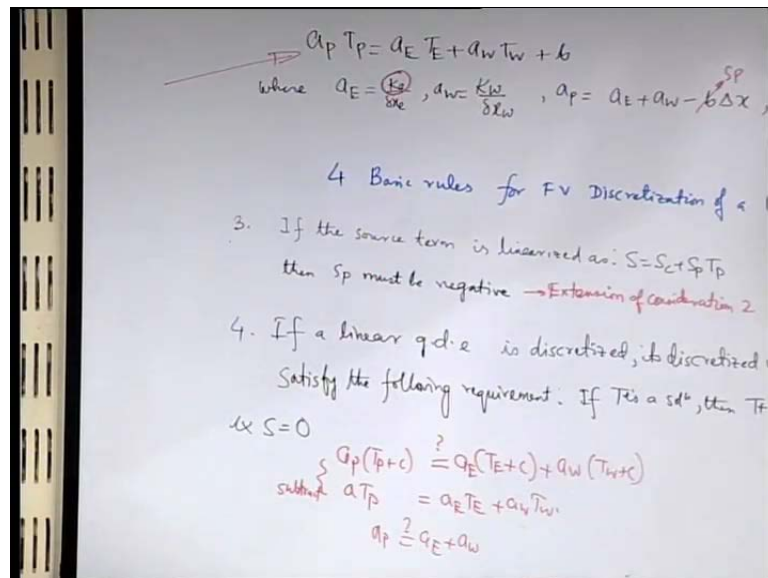 a_P T_P = a_E T_E + a_W T_W + b
where a_E = K_e/δx_e , a_W = K_W/δx_W , a_P = a_E + a_W - b Δx ,
SP
4 Basic rules for FV Discretization of a
3. If the source term is linearized as: S = S_C + S_P T_P
then Sp must be negative → Extension of consideration 2
4. If a linear g.d.e is discretized, its discretized
Satisfy the following requirement: If T is a solⁿ, then T+
ex S=0
a_P (T_P+c) ?= a_E (T_E+c) + a_W (T_W+c)
subtract a T_P = a_E T_E + a_W T_W.
a_P ?= a_E + a_W